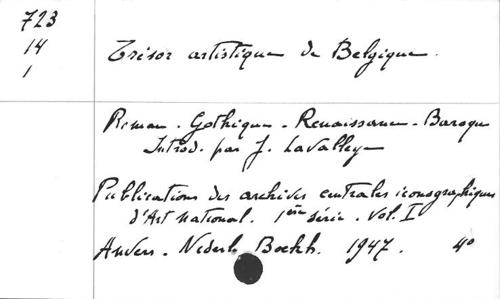 723
14
1
Trésor artistique de Belgique.
Roman - Gothique - Renaissance - Baroque
Introd. par J. Lavalleye
Publications des archives centrales iconographiques
d'Art national. 1ère série. Vol. I
Anvers - Nederl. Boekh. 1947. 4°